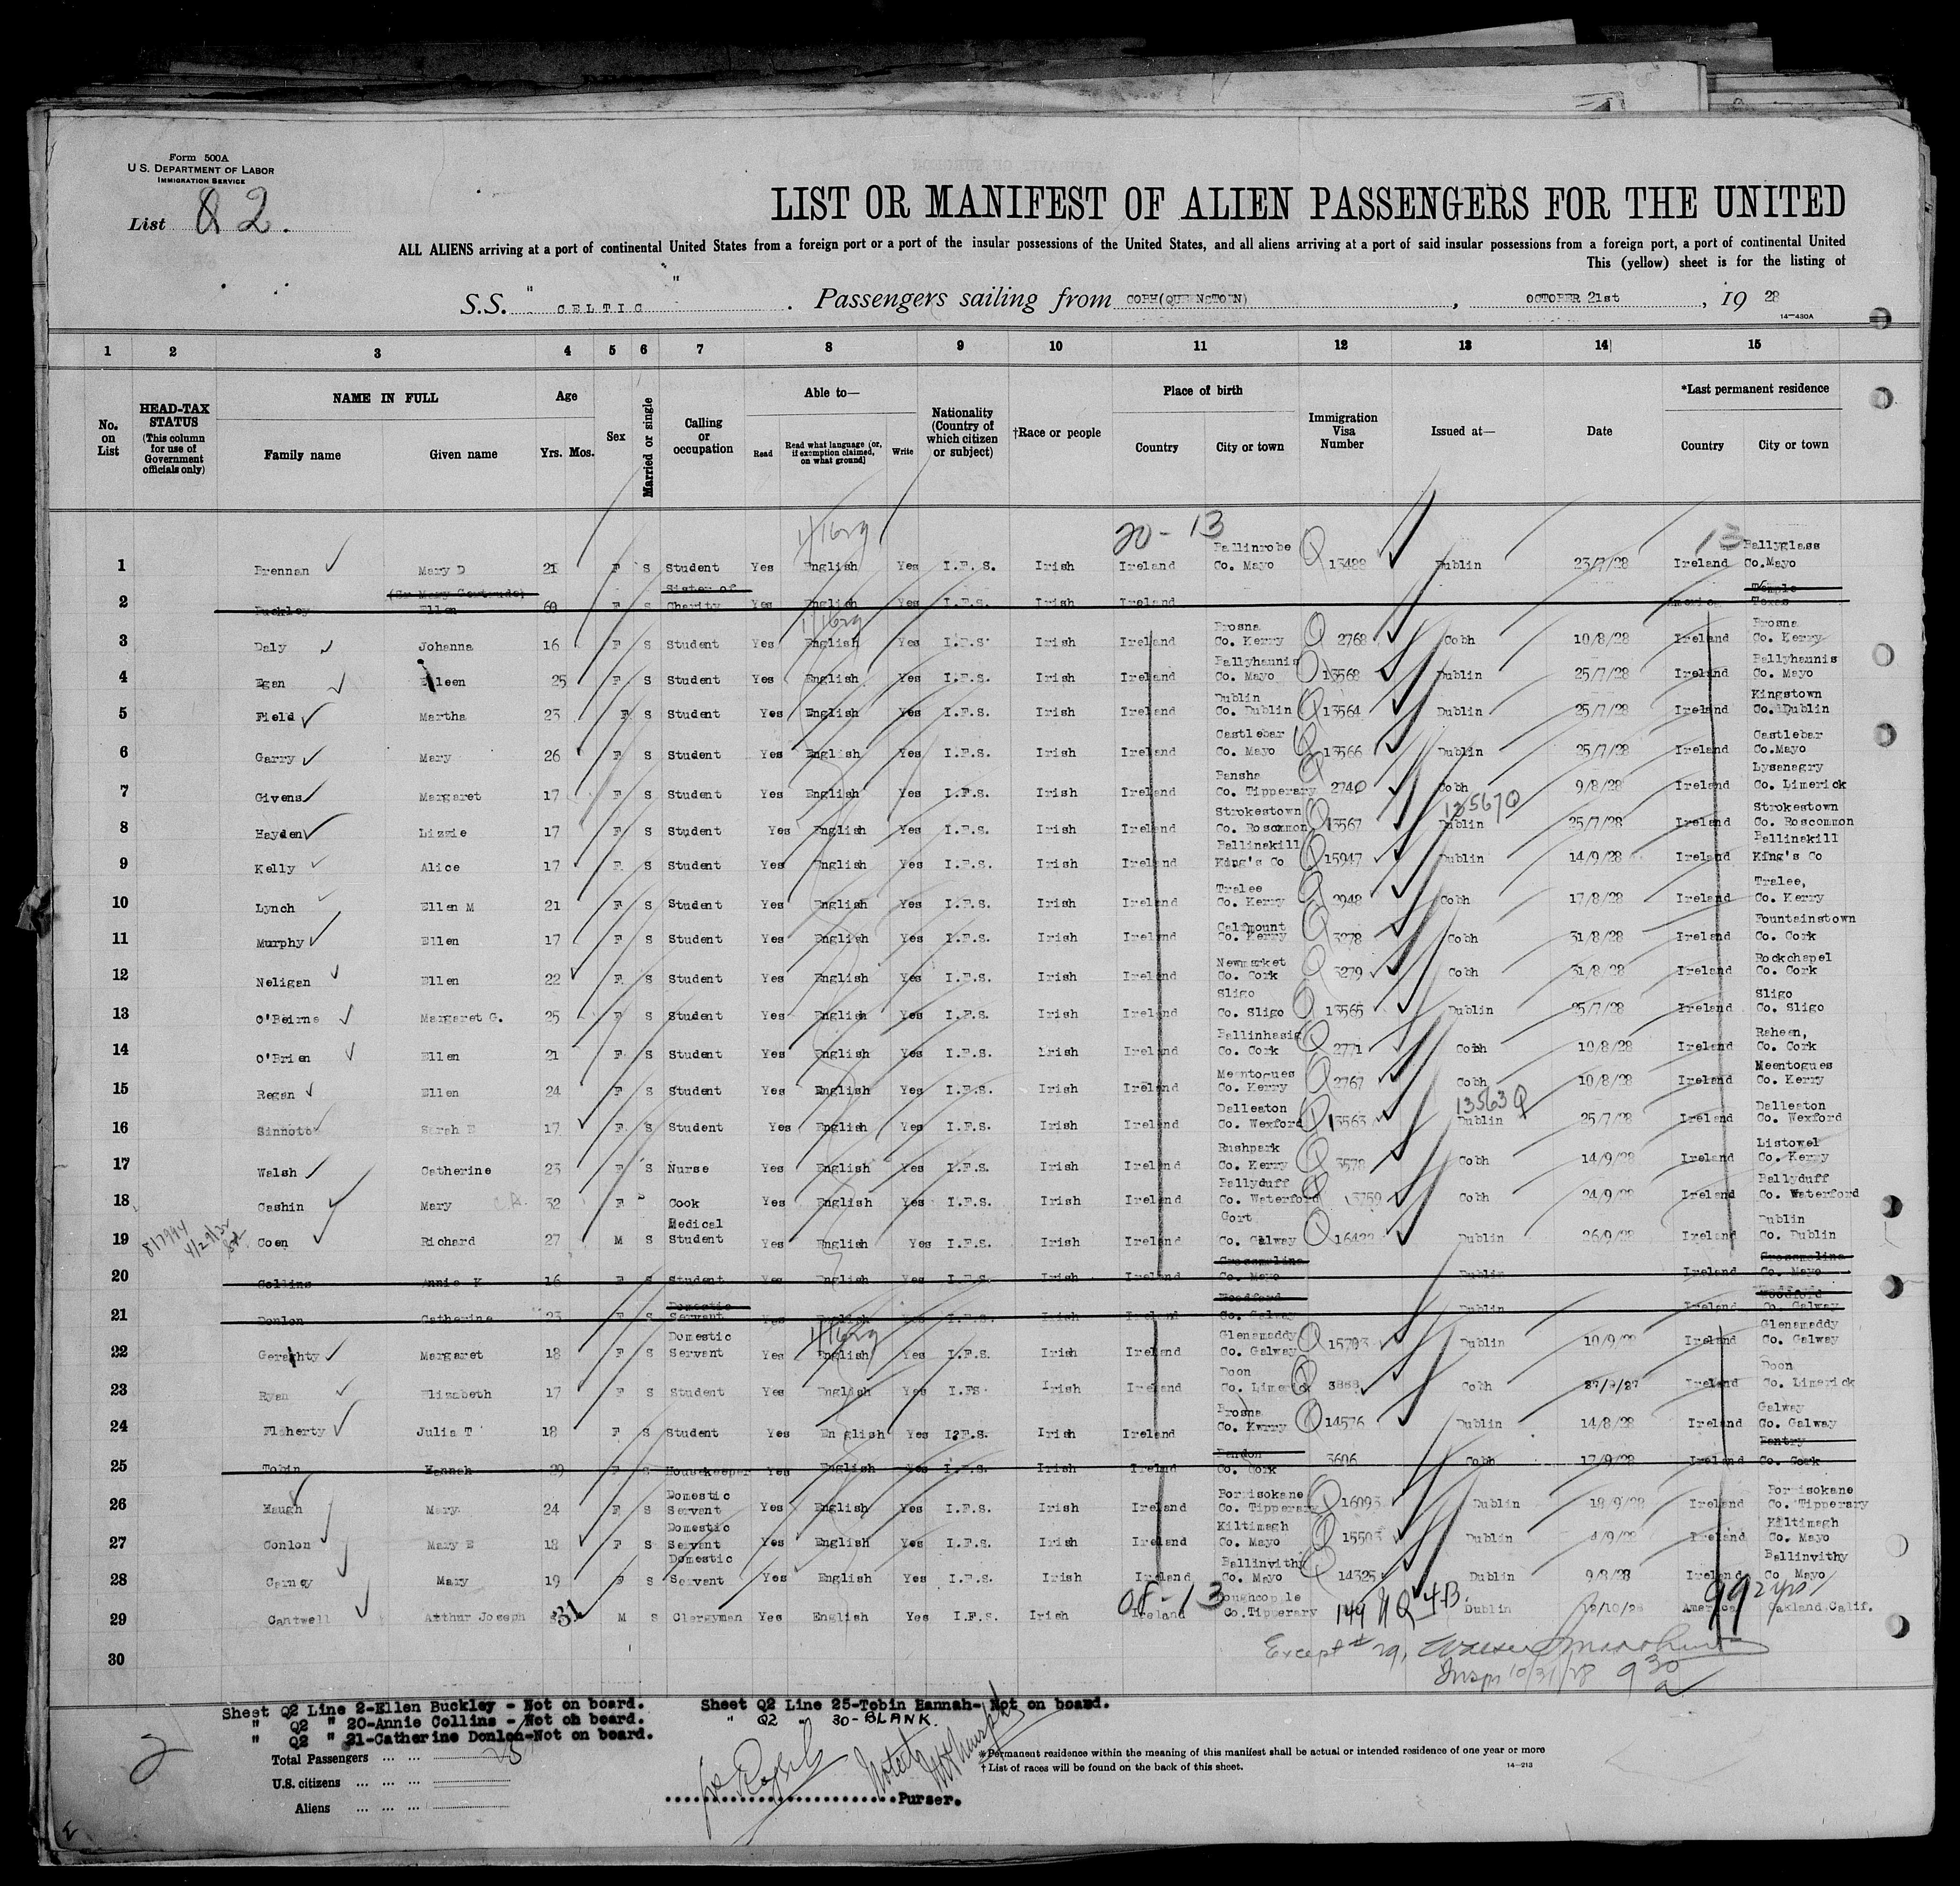 Form 500A
U.S. DEPARTMENT OF LABOR
IMMIGRATION SERVICE
List Q2.
LIST OR MANIFEST OF ALIEN PASSENGERS FOR THE UNITED
ALL ALIENS arriving at a port of continental United States from a foreign port or a port of the insular possessions of the United States, and all aliens arriving at a port of said insular possessions from a foreign port, a port of continental United
This (yellow) sheet is for the listing of
S.S. "CELTIC". Passengers sailing from COBH(QUEENSTOWN), OCTOBER 21st, 19 28
14—430A
1 2 3 4 5 6 7 8 9 10 11 12 13 14 15
No. on List HEAD-TAX STATUS (This column for use of Government officials only) NAME IN FULL Family name Given name Age Yrs. Mos. Sex Married or single Calling or occupation Able to— Read Read what language (or, if exemption claimed, on what ground) Write Nationality (Country of which citizen or subject) †Race or people Place of birth Country City or town Immigration Visa Number Issued at— Date *Last permanent residence Country City or town
20-13 13
1 Brennan Mary D 21 F S Student Yes English Yes I.F.S. Irish Ireland Ballinrobe Co. Mayo Q 13488 Dublin 23/7/28 Ireland Ballyglass Co.Mayo
2 Buckley (Sr Mary Gertrude) Ellen 60 F S Sister of Charity Yes English Yes I.F.S. Irish Ireland America Temple Texas
3 Daly Johanna 16 F S Student Yes English Yes I.F.S. Irish Ireland Brosna Co. Kerry Q 2768 Cobh 10/8/28 Ireland Brosna Co. Kerry
4 Egan Eileen 25 F S Student Yes English Yes I.F.S. Irish Ireland Ballyhaunis Co. Mayo Q 13568 Dublin 25/7/28 Ireland Ballyhaunis Co. Mayo
5 Field Martha 23 F S Student Yes English Yes I.F.S. Irish Ireland Dublin Co. Dublin Q 13564 Dublin 25/7/28 Ireland Kingstown Co. Dublin
6 Garry Mary 26 F S Student Yes English Yes I.F.S. Irish Ireland Castlebar Co. Mayo Q 13566 Dublin 25/7/28 Ireland Castlebar Co.Mayo
7 Givens Margaret 17 F S Student Yes English Yes I.F.S. Irish Ireland Bansha Co. Tipperary Q 2740 Cobh 9/8/28 Ireland Lysanagry Co. Limerick
13567Q
8 Hayden Lizzie 17 F S Student Yes English Yes I.F.S. Irish Ireland Strokestown Co. Roscommon Q 13567 Dublin 25/7/28 Ireland Strokestown Co. Roscommon
9 Kelly Alice 17 F S Student Yes English Yes I.F.S. Irish Ireland Ballinakill King's Co Q 15947 Dublin 14/9/28 Ireland Ballinakill King's Co
10 Lynch Ellen M 21 F S Student Yes English Yes I.F.S. Irish Ireland Tralee Co. Kerry Q 2948 Cobh 17/8/28 Ireland Tralee, Co. Kerry
11 Murphy Ellen 17 F S Student Yes English Yes I.F.S. Irish Ireland Co. Kerry Q 3278 Cobh 31/8/28 Ireland Fountainstown Co. Cork
12 Neligan Ellen 22 F S Student Yes English Yes I.F.S. Irish Ireland Newmarket Co. Cork Q 3279 Cobh 31/8/28 Ireland Rockchapel Co. Cork
13 O'Beirne Margaret G. 25 F S Student Yes English Yes I.F.S. Irish Ireland Sligo Co. Sligo Q 13565 Dublin 25/7/28 Ireland Sligo Co. Sligo
14 O'Brien Ellen 21 F S Student Yes English Yes I.F.S. Irish Ireland Ballinhasig Co. Cork Q 2771 Cobh 10/8/28 Ireland Raheen, Co. Cork
15 Regan Ellen 24 F S Student Yes English Yes I.F.S. Irish Ireland Meentogues Co. Kerry Q 2767 Cobh 10/8/28 Ireland Meentogues Co. Kerry
13563 Q
16 Sinnott Sarah E 17 F S Student Yes English Yes I.F.S. Irish Ireland Dalleaton Co. Wexford Q 13563 Dublin 25/7/28 Ireland Dalleaton Co. Wexford
17 Walsh Catherine 23 F S Nurse Yes English Yes I.F.S. Irish Ireland Rushpark Co. Kerry Q 3578 Cobh 14/9/28 Ireland Listowel Co. Kerry
18 Cashin Mary 32 F Cook Yes English Yes I.F.S. Irish Ireland Ballyduff Co. Waterford Q 3759 Cobh 24/9/28 Ireland Ballyduff Co. Waterford
19 Coen Richard 27 M S Medical Student Yes English Yes I.F.S. Irish Ireland Gort Co. Galway Q Dublin 26/9/28 Ireland Dublin Co. Dublin
20 Collins Annie K 16 F S Student Yes English Yes I.F.S. Irish Ireland Crossmolina Co. Mayo Dublin Ireland Crossmolina Co. Mayo
21 Donlon Catherine 23 F S Domestic Servant Yes English Yes I.F.S. Irish Ireland Woodford Co. Galway Dublin Ireland Woodford Co. Galway
22 Geraghty Margaret 18 F S Domestic Servant Yes English Yes I.F.S. Irish Ireland Glenamaddy Co. Galway Q 15793 Dublin 10/9/28 Ireland Glenamaddy Co. Galway
23 Ryan Elizabeth 17 F S Student Yes English Yes I.FS. Irish Ireland Doon Co. Limerick Q 3868 Cobh 27/9/27 Ireland Doon Co. Limerick
24 Floherty Julia T 18 F S Student Yes English Yes I.F.S. Irish Ireland Brosna Co. Kwrry Q 14576 Dublin 14/8/28 Ireland Galway Co. Galway
25 Tobin Hannah 29 F S Housekeeper Yes English Yes I.F.S. Irish Ireland Bandon Co. Cork 3606 Cobh 17/9/28 Ireland Bantry Co. Cork
26 Haugh Mary 24 F S Domestic Servant Yes English Yes I.F.S. Irish Ireland Borrisokane Co. Tipperary Q 16093 Dublin 18/9/28 Ireland Borrisokane Co. Tipperary
27 Conlon Mary E 18 F S Domestic Servant Yes English Yes I.F.S. Irish Ireland Kiltimagh Co. Mayo Q 15503 Dublin 4/9/28 Ireland Kiltimagh Co. Mayo
28 Carney Mary 19 F S Domestic Servant Yes English Yes I.F.S. Irish Ireland Ballinvithy Co. Mayo Q 14325 Dublin 9/8/28 Ireland Ballinvithy Co Mayo
29 Cantwell Arthur Joseph 31 M S Clergyman Yes English Yes I.F.S. Irish Ireland Co.Tipperary Dublin America Oakland, Calif.
30
Except #29,
Insp 10/31/28 9 30 a
Sheet Q2 Line 2-Ellen Buckley - Not on board. Sheet Q2 Line 25-Tobin Hannah- Not on board.
" Q2 " 20-Annie Collins - Not on board. " Q2 - 30-BLANK.
" Q2 " 21-Catherine Donlon-Not on board.
Total Passengers ... ... 25
U.S. citizens ... ... ...
Aliens ... ... ...
Noted
Purser.
*Permanent residence within the meaning of this manifest shall be actual or intended residence of one year or more
†List of races will be found on the back of this sheet.
14—213
2